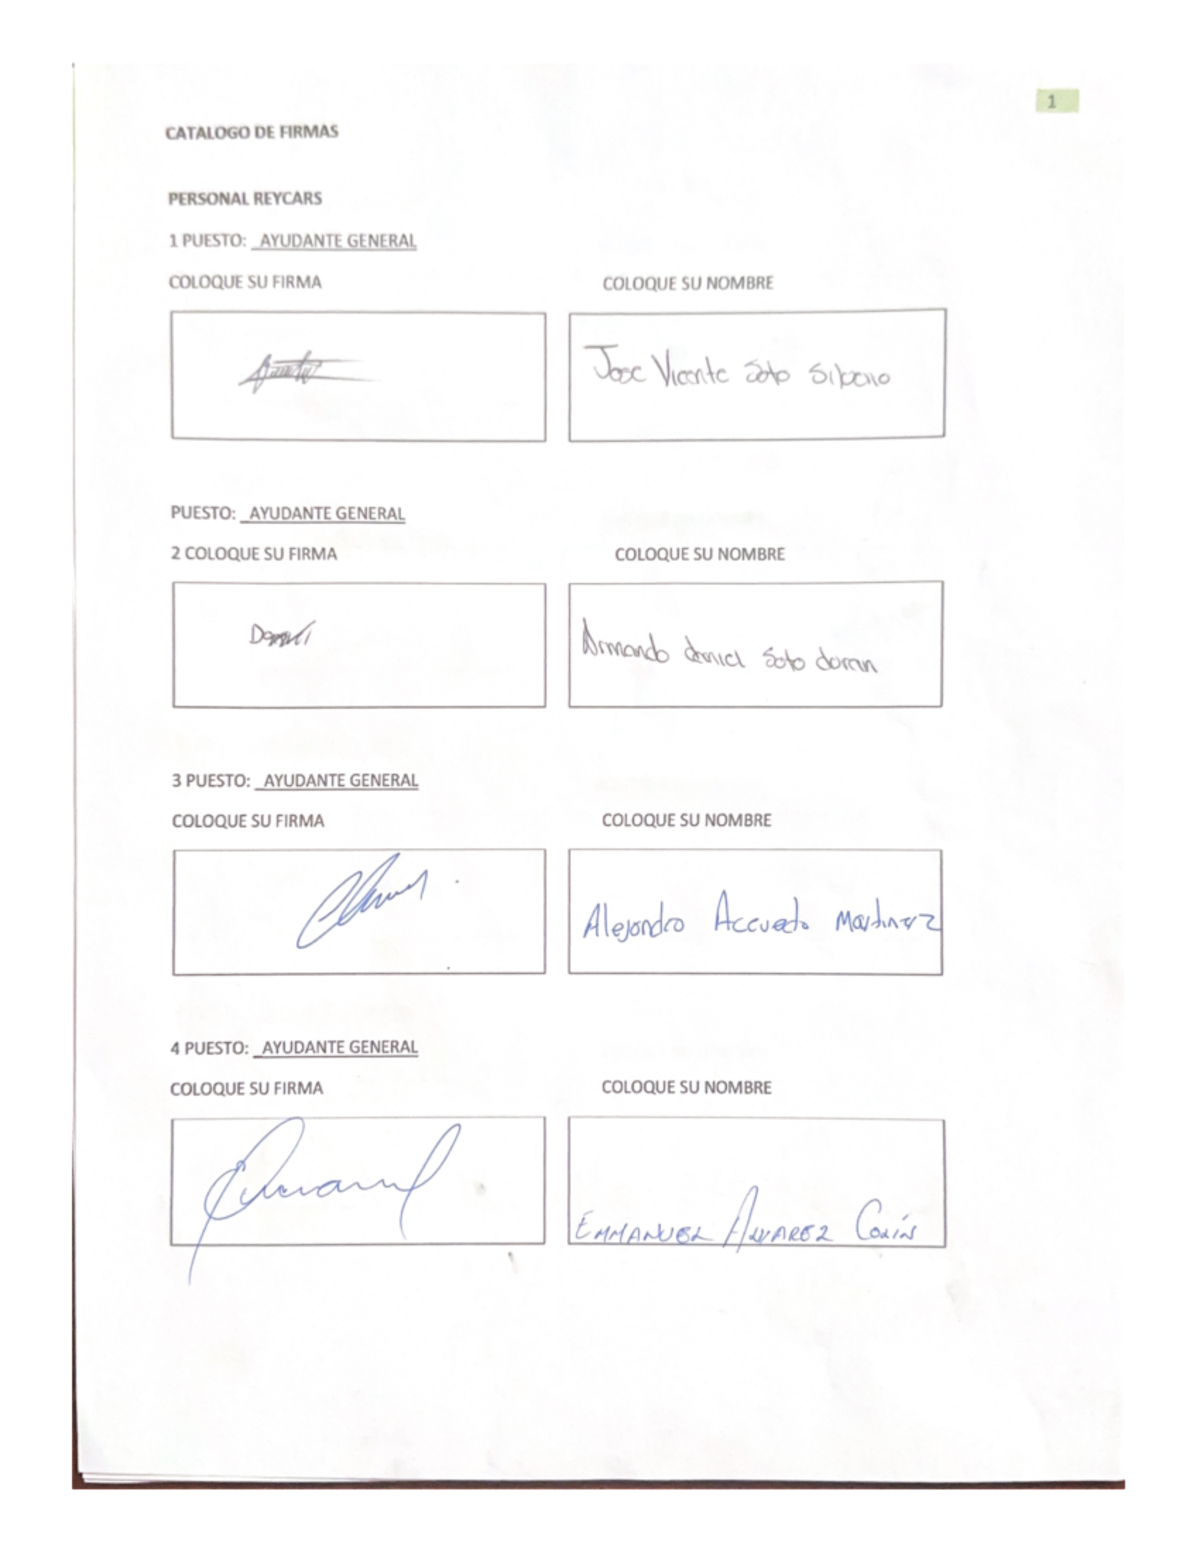 1
CATALOGO DE FIRMAS
PERSONAL REYCARS
1 PUESTO: AYUDANTE GENERAL
COLOQUE SU FIRMA COLOQUE SU NOMBRE
Jose Vicente Soto
PUESTO: AYUDANTE GENERAL
2 COLOQUE SU FIRMA COLOQUE SU NOMBRE
Armando daniel Soto duran
3 PUESTO: AYUDANTE GENERAL
COLOQUE SU FIRMA COLOQUE SU NOMBRE
Alejandro Acevedo Martinez
4 PUESTO: AYUDANTE GENERAL
COLOQUE SU FIRMA COLOQUE SU NOMBRE
EMMANUEL ALVAREZ